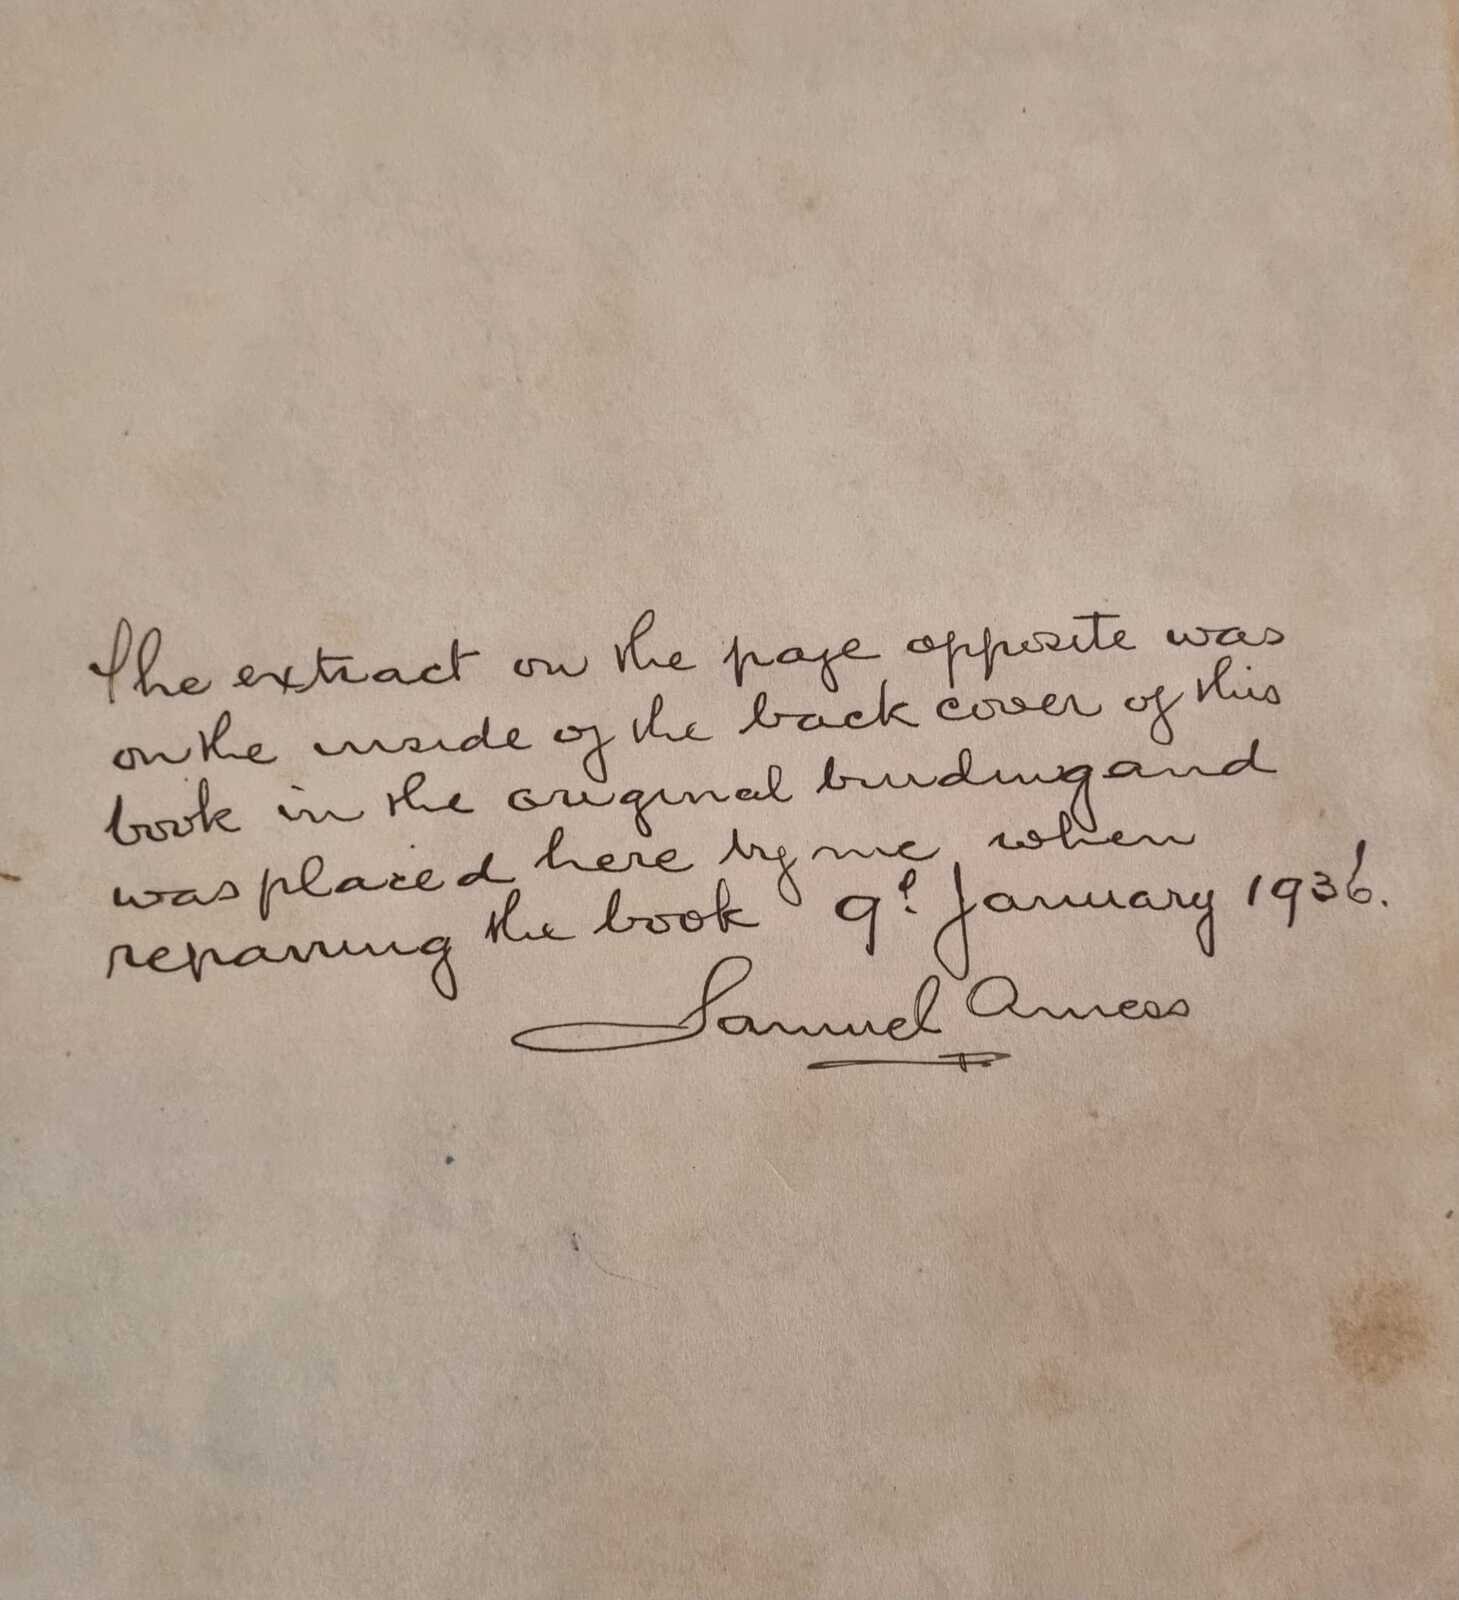 The extract on the page opposite was
on the inside of the back cover of this
book in the original binding and
was placed here by me when
repairing the book 9th January 1936.
Samuel Amess